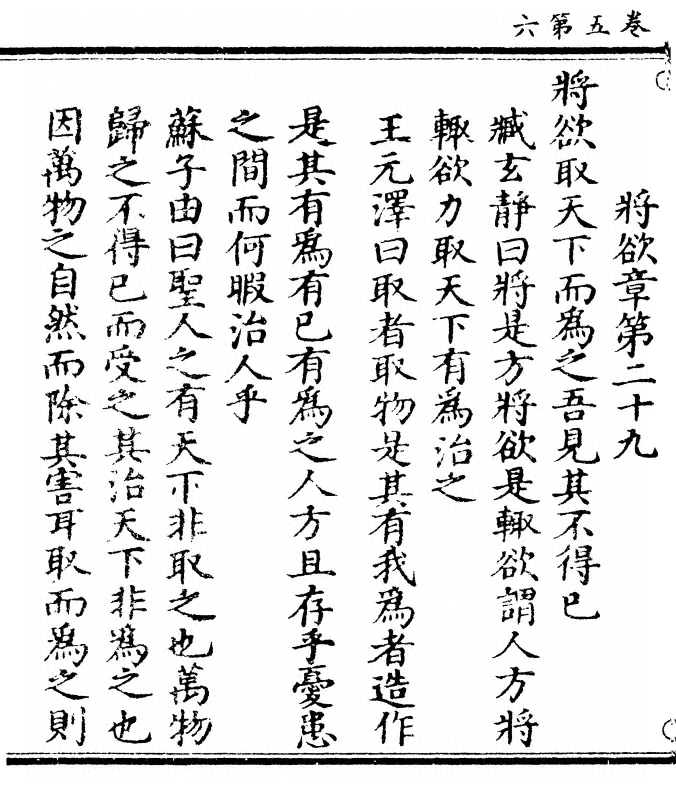 卷五第六
將欲章第二十九
將欲取天下而爲之吾見其不得已
臧玄靜曰將是方將欲是輙欲謂人方將
輙欲力取天下有爲治之
王元澤曰取者取物是其有我爲者造作
是其有爲有已有爲之人方且存乎憂患
之間而何暇治人乎
蘇子由曰聖人之有天下非取之也萬物
歸之不得已而受之其治天下非爲之也
因萬物之自然而除其害耳取而爲之則